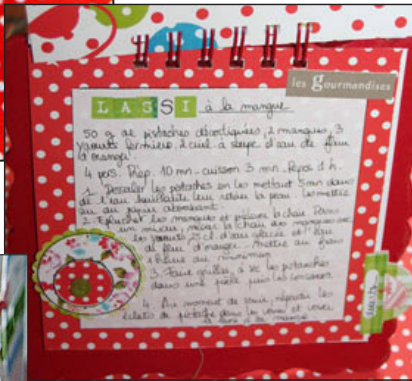 les gourmandises
LASSI à la mangue
50 g de pistaches décortiquées, 2 mangues, 3
yaourts fermiers 2 cuil à soupe d'eau de fleur
d'oranger.
4 pers. Prép. 10 mn - cuisson 3 mn. Repos 1 h.
1. les pistaches en les mettant 5 mn dans
de l'eau bouillante leur retirer la peau. Les mettre
sur du papier absorbant.
2. Eplucher les mangues et prélever la chair. Dans
un mixeur, mixer la chair des mangues avec
les yaourts 25 cl d'eau glacée et l'eau
de fleur d'oranger. Mettre au frais
1 heure au minimum
3. Faire griller à sec les pistaches
dans une poêle puis les concasser
4. Au moment de servir, répartir les
éclats de pistache dans les verres et verser
le lassi à la mangue